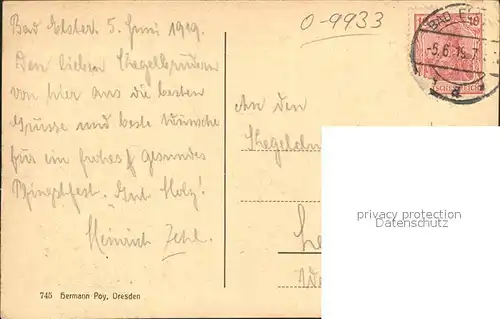 O-9933
Bad Elster. 5. Juni 1919.
Den lieben Kegelbrüdern
von hier aus die besten
Grüsse und beste Wünsche
für ein frohes & gesundes
Pfingstfest. „Gut Holz“!
Heinrich
BAD
-5.6.19.7
a
10
An den
privacy protection
Datenschutz
745 Hermann Poy, Dresden